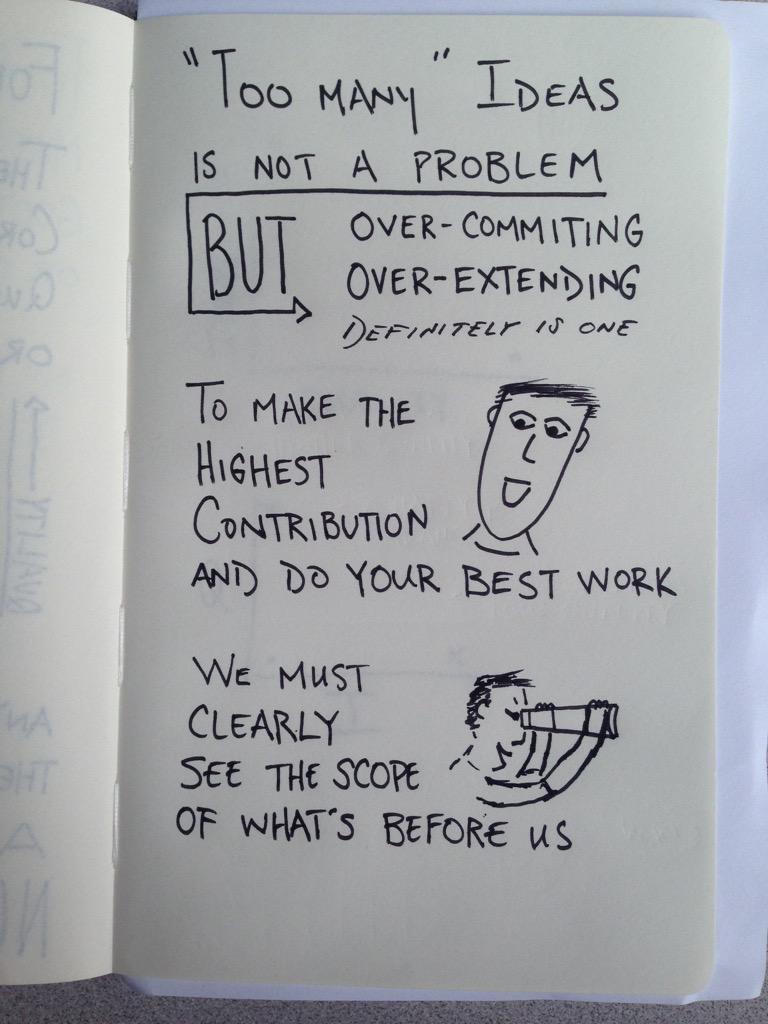 "Too many" Ideas
is not a problem
BUT over-commiting
over-extending
Definitely is one
To make the
Highest
Contribution
and do your best work
We must
clearly
see the scope
of what's before us